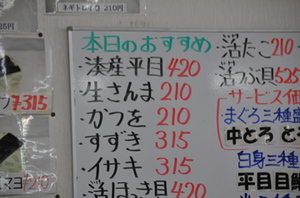 ネギトロイクラ
210円
本日のおすすめ
湊産平目 420
生さんま 210
かつを 210
すずき 315
イサキ 315
活ほっき貝 420
活たこ 210
活つぶ貝 525
サービス価
まぐろ三種
中とろ
白身三種
平目
315
マヨ
210